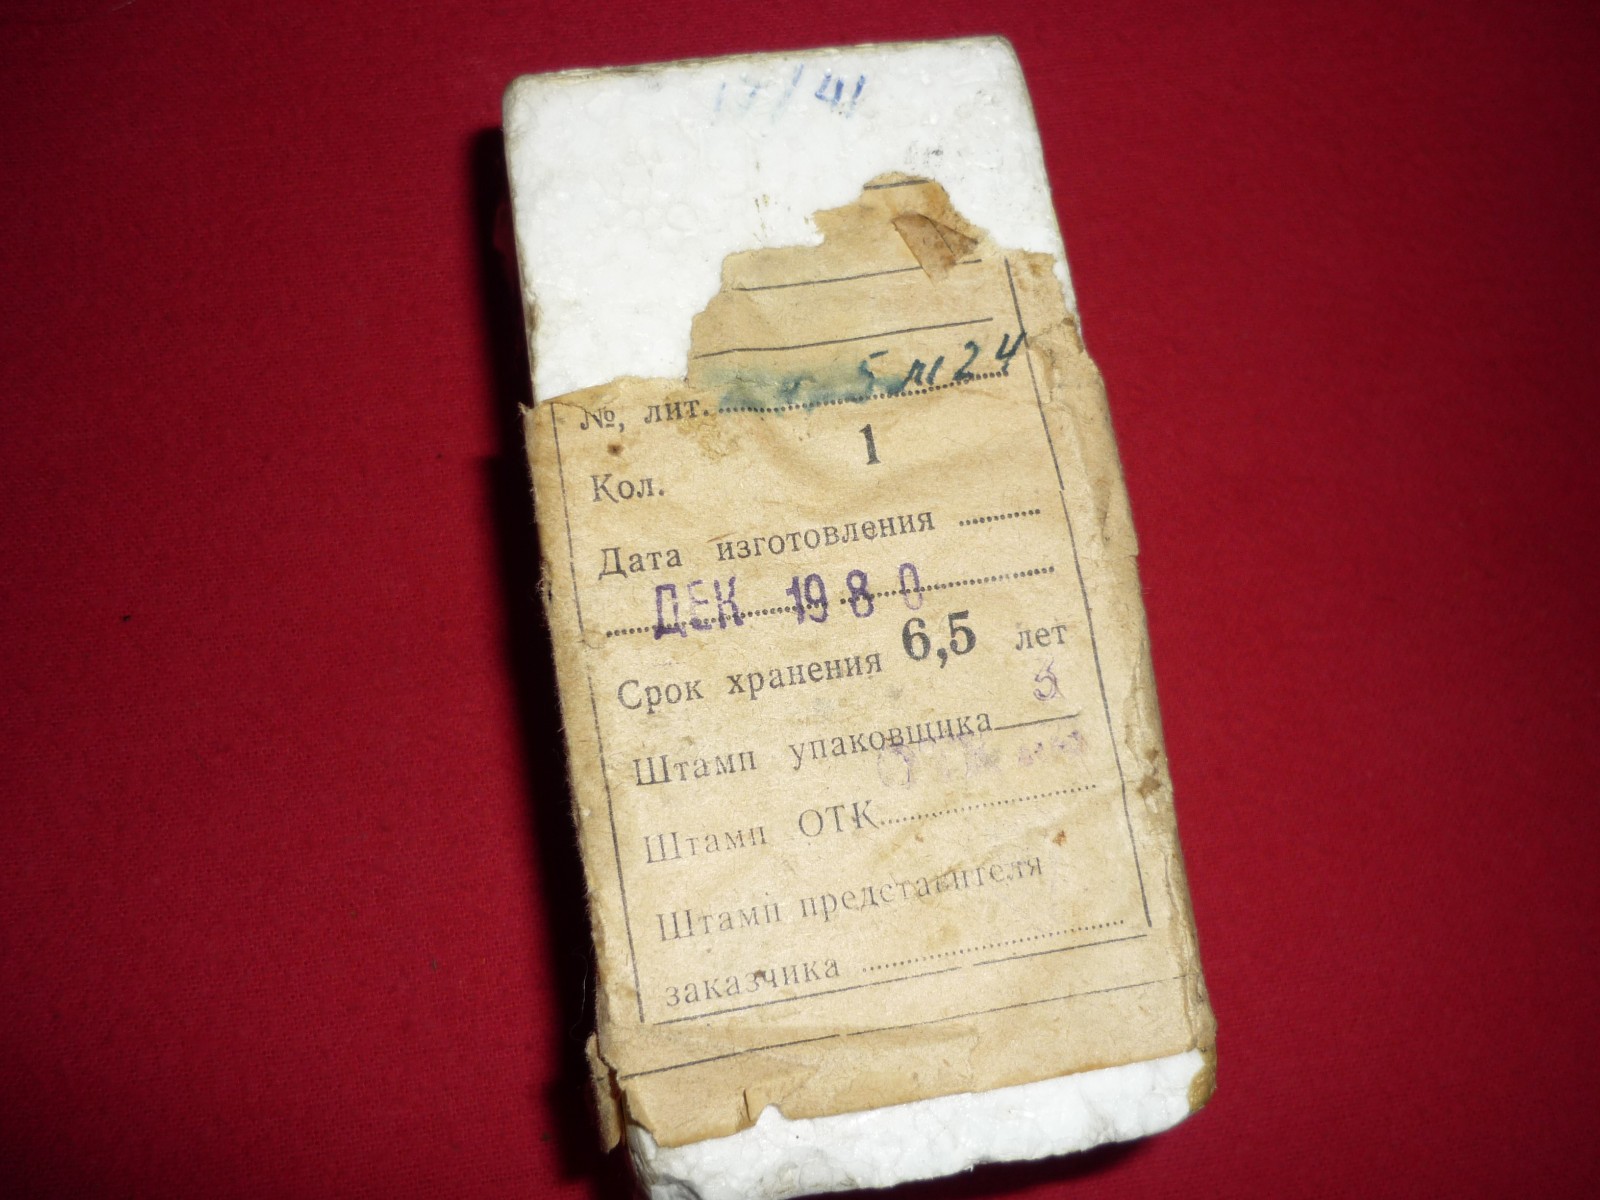 17/41
№, лит. 5 м 24
Кол. 1
Дата изготовления
ДЕК 1980
Срок хранения 6,5 лет
Штамп упаковщика 5
Штамп ОТК
Штамп представителя
заказчика